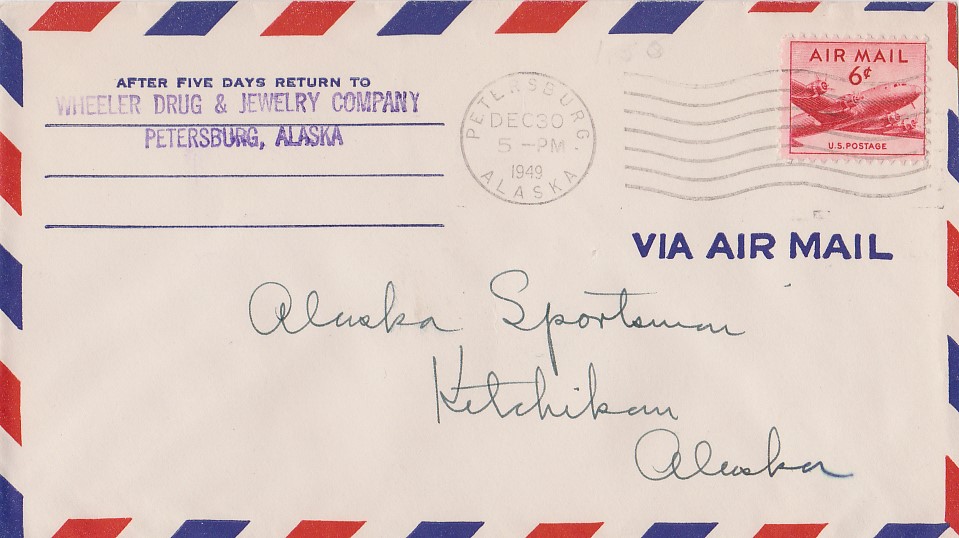 AFTER FIVE DAYS RETURN TO
WHEELER DRUG & JEWELRY COMPANY
PETERSBURG, ALASKA
PETERSBURG.
DEC 30
5 - PM
1949
ALASKA
AIR MAIL
6¢
U.S. POSTAGE
VIA AIR MAIL
Alaska Sportsman
Ketchikan
Alaska